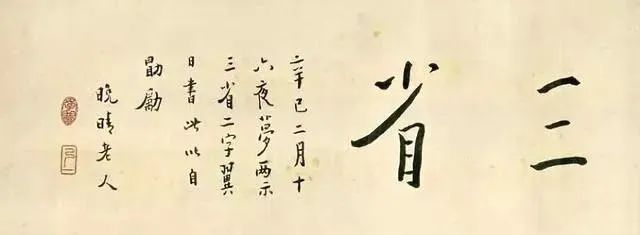 三省
辛巳二月十
六夜夢两示
三省二字翼
日書此以自
勖勵
晚晴老人